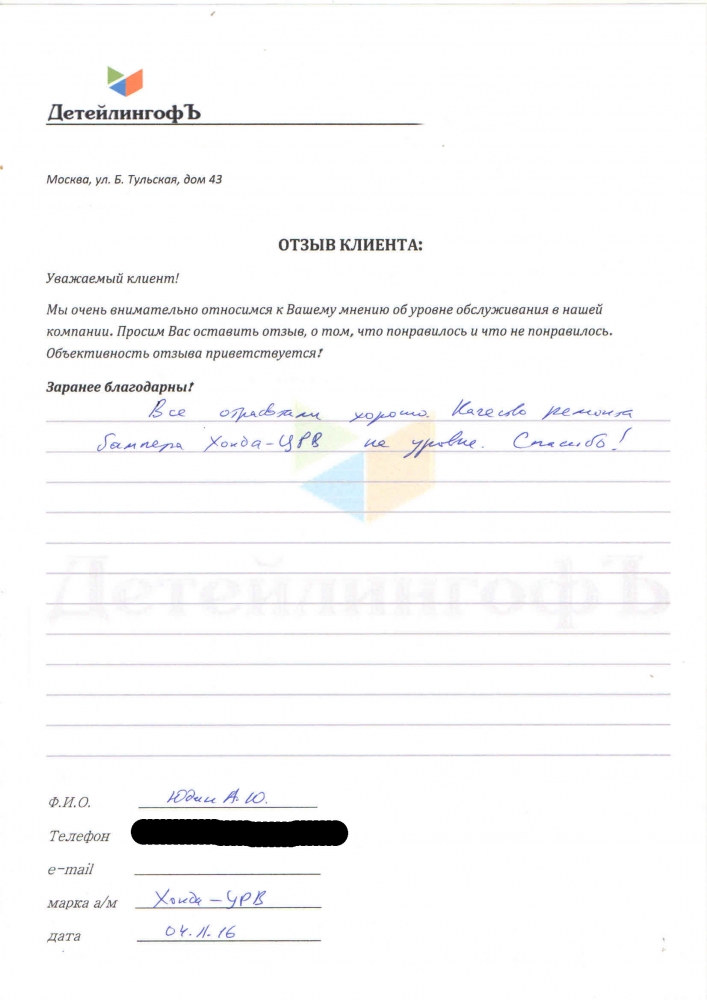 ДетейлингофЪ
Москва, ул. Б. Тульская, дом 43
ОТЗЫВ КЛИЕНТА:
Уважаемый клиент!
Мы очень внимательно относимся к Вашему мнению об уровне обслуживания в нашей
компании. Просим Вас оставить отзыв, о том, что понравилось и что не понравилось.
Объективность отзыва приветствуется!
Заранее благодарны!
Все отработали хорошо. Качество ремонта
бампера Хонда-ЦРВ на уровне. Спасибо!
ДетейлингофЪ
Ф.И.О. Юдин А.Ю.
Телефон
e-mail
марка а/м Хонда-ЦРВ
дата 04.11.16